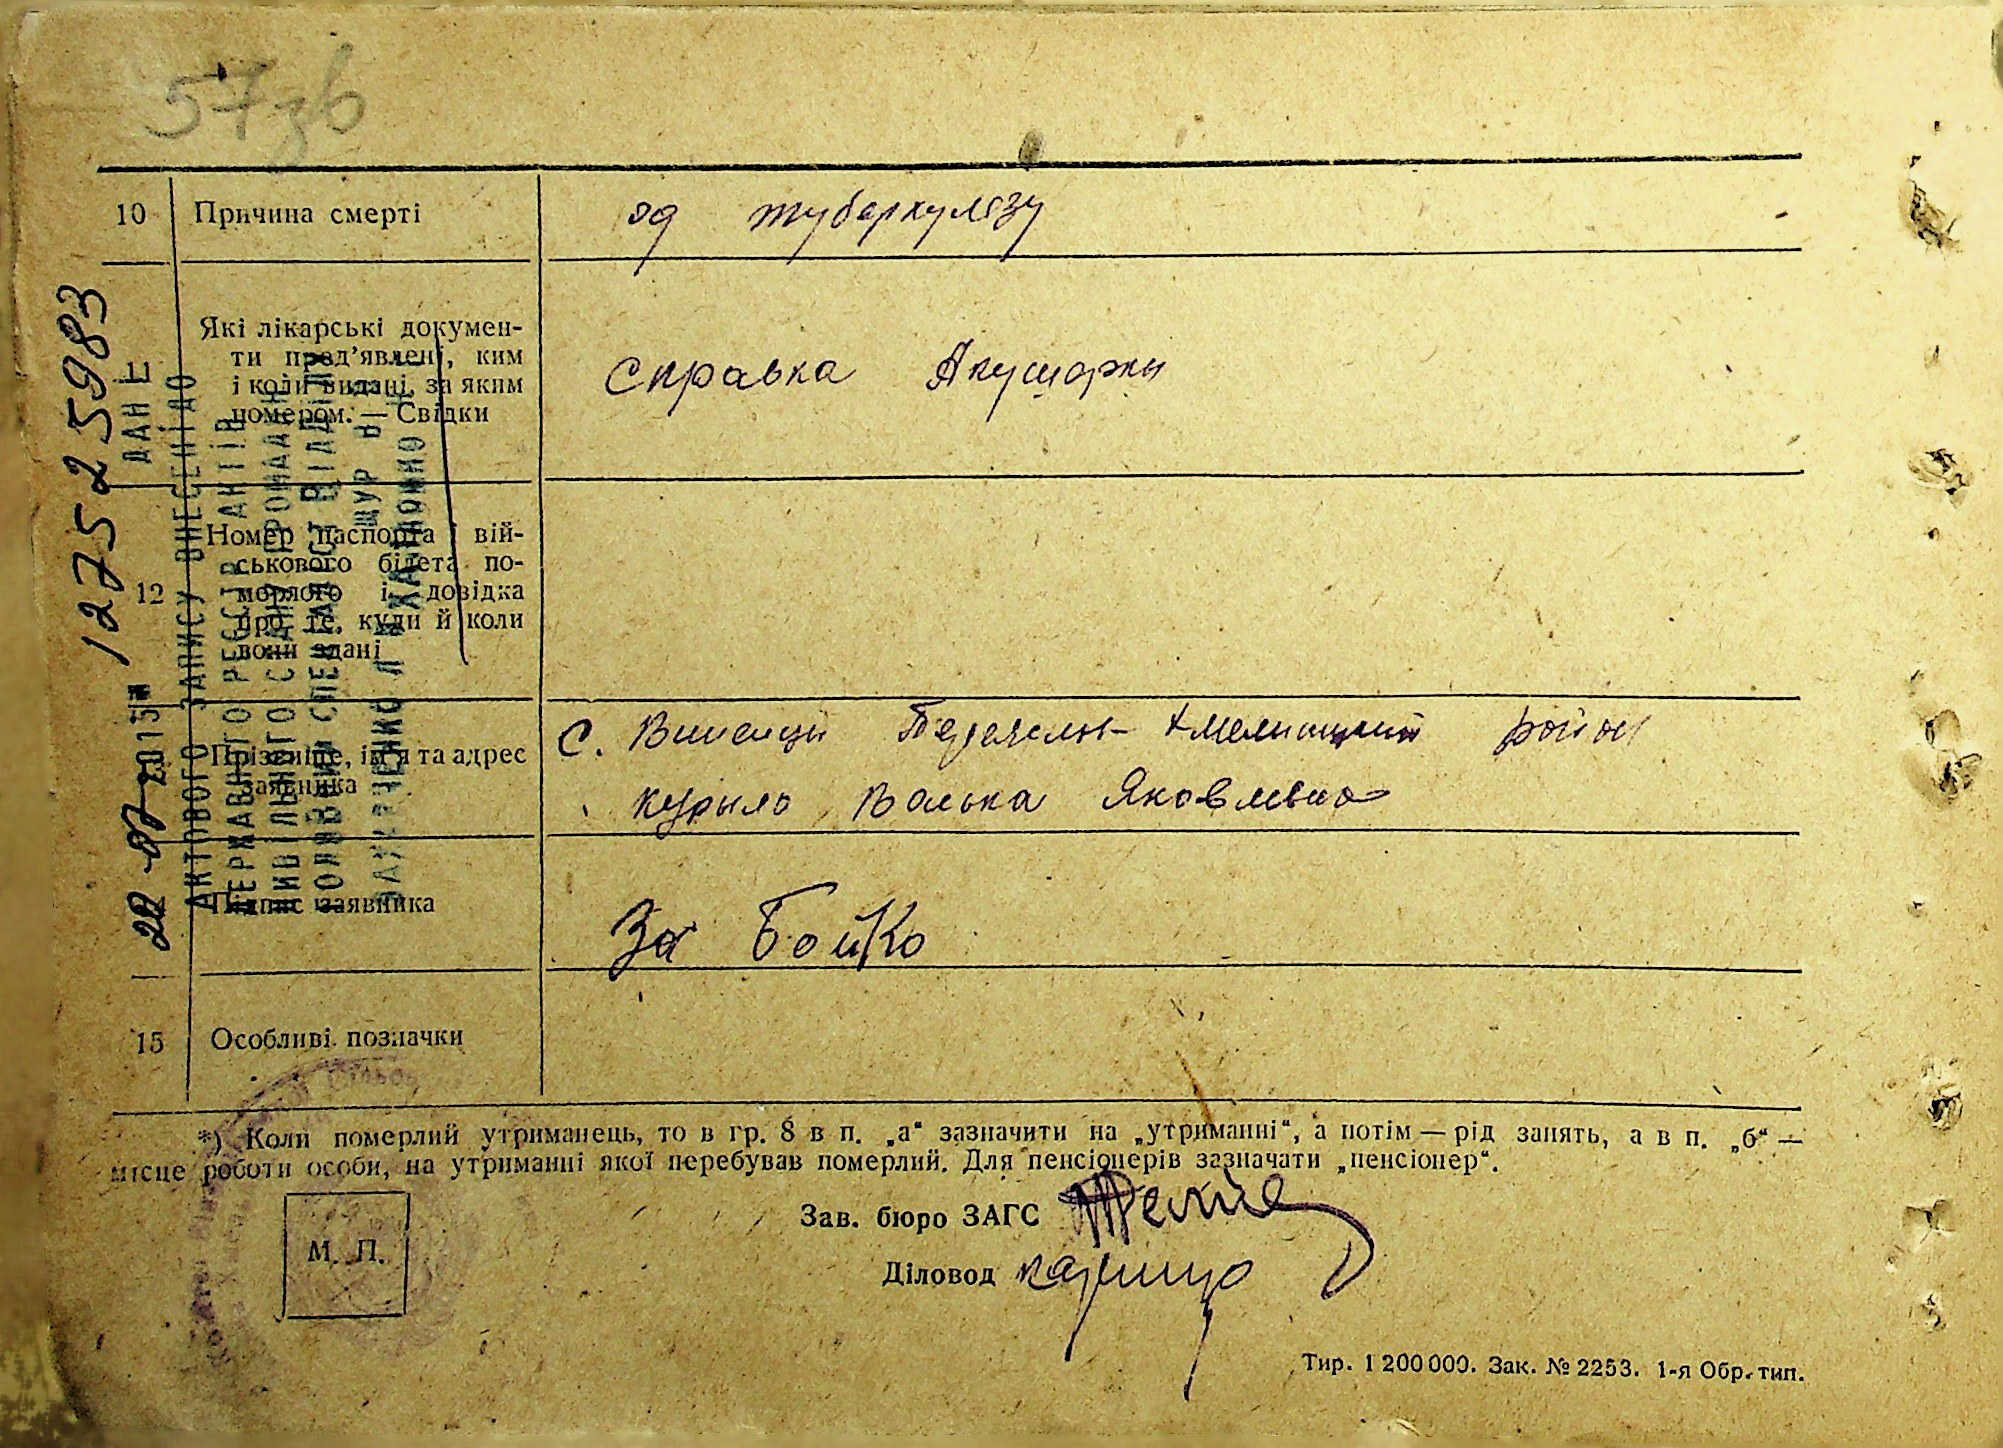 57зв
10 Причина смерті од туберкулєзу
11 Які лікарські докумен-
ти пред'явлені, ким
і коли видані, за яким
номером. — Свідки
Справка Акушорки
12 Номер паспорта і вій-
ськового білета по-
мерлого і довідка
про те, куди й коли
вони здані
Прізвище, ім'я та адрес
заявника
с. Виненци Переяслы- Хмелницкий район
Курыло Волька Яковлевна
Підпис заявника За Бойко
15 Особливі позначки
*) Коли померлий утриманець, то в гр. 8 в п. „а“ зазначити на „утриманні“, а потім — рід занять, а в п. „б“ —
місце роботи особи, на утриманні якої перебував померлий. Для пенсіонерів зазначати „пенсіонер“.
Зав. бюро ЗАГС
М. П.
Діловод
Тир. 1 200 000. Зак. № 2253. 1-я Обр. тип.
12752 5983
ДАНІ
АКТОВОГО ЗАПИСУ ВНЕСЕНІ ДО
ДЕРЖАВНОГО РЕЄСТР АКТІВ
ЦИВІЛЬНОГО СТАНУ ГРОМАДЯН
ГОЛОВНИЙ СПЕЦІАЛІСТ ВІДДІЛУ
22 07 2015